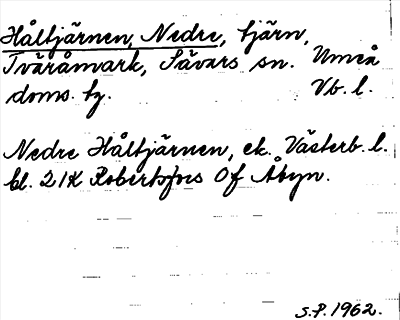 Håltjärnen, Nedre, tjärn,
Tväråmark, Sävars sn. Umeå
doms. tg. Vb. l.
Nedre Håltjärnen, ek. Västerb. l.
bl. 21K Robertsfors 0f Åbyn.
S.P. 1962.